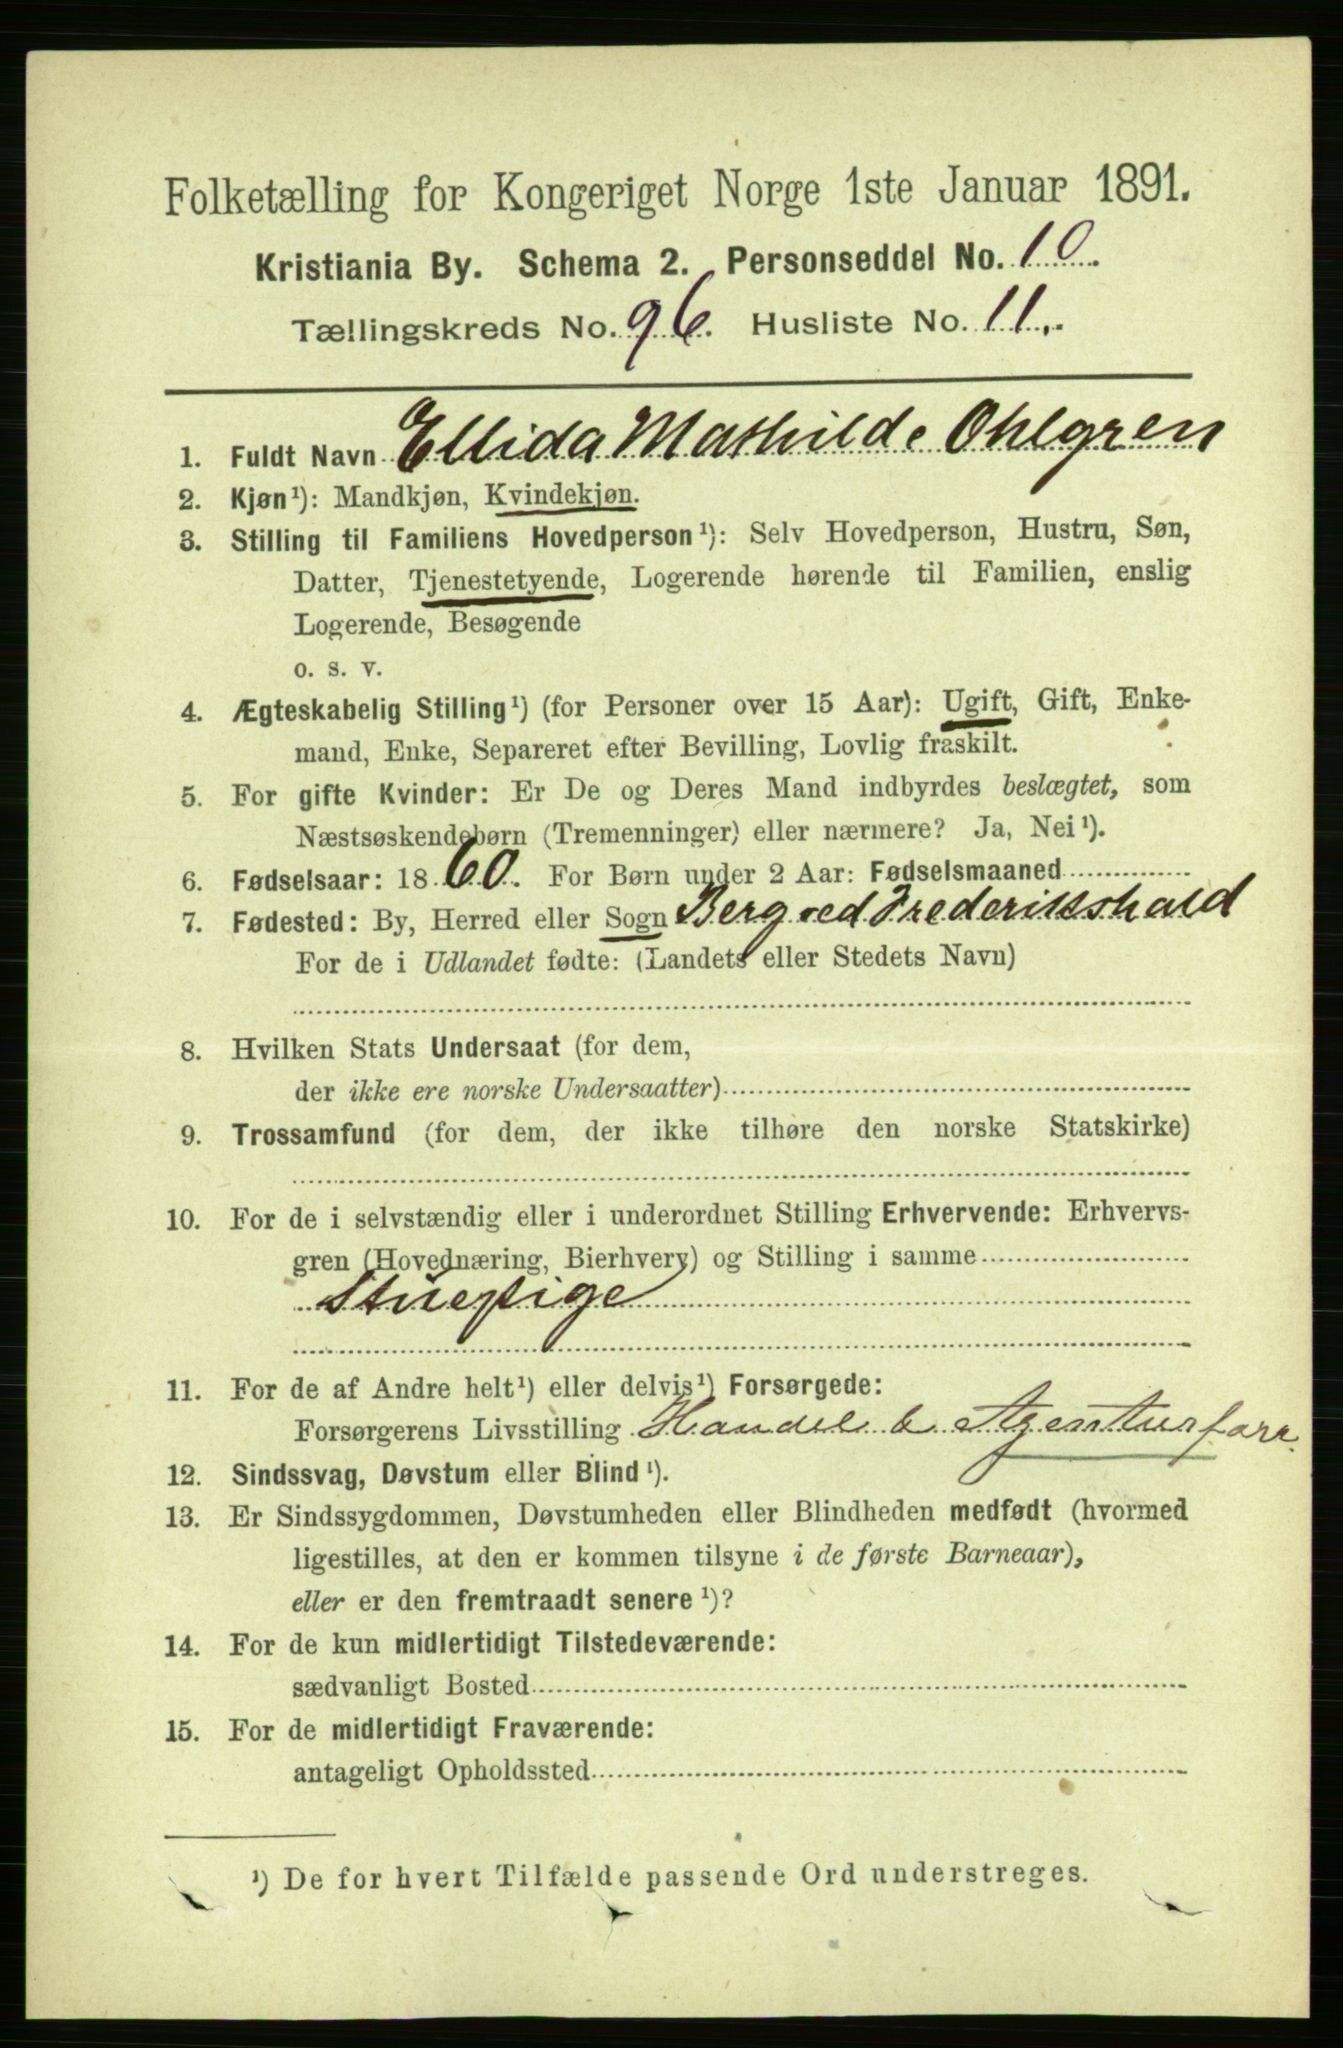 Folketælling for Kongeriget Norge 1ste Januar 1891.
Kristiania By. Schema 2. Personseddel No. 10.
Tællingskreds No. 96. Husliste No. 11.
1. Fuldt Navn Ellida Mathilde Ohlgren
2. Kjøn¹): Mandkjøn, Kvindekjøn.
3. Stilling til Familiens Hovedperson¹): Selv Hovedperson, Hustru, Søn,
Datter, Tjenestetyende, Logerende hørende til Familien, enslig
Logerende, Besøgende
o. s. v.
4. Ægteskabelig Stilling¹) (for Personer over 15 Aar): Ugift, Gift, Enke-
mand, Enke, Separeret efter Bevilling, Lovlig fraskilt.
5. For gifte Kvinder: Er De og Deres Mand indbyrdes beslægtet, som
Næstsøskendebørn (Tremenninger) eller nærmere? Ja, Nei¹).
6. Fødselsaar: 1860. For Børn under 2 Aar: Fødselsmaaned
7. Fødested: By, Herred eller Sogn Berg ved Frederikshald
For de i Udlandet fødte: (Landets eller Stedets Navn)
8. Hvilken Stats Undersaat (for dem,
der ikke ere norske Undersaatter)
9. Trossamfund (for dem, der ikke tilhøre den norske Statskirke)
10. For de i selvstændig eller i underordnet Stilling Erhvervende: Erhvervs-
gren (Hovednæring, Bierhverv) og Stilling i samme
Stuepige
11. For de af Andre helt¹) eller delvis¹) Forsørgede:
Forsørgerens Livsstilling Handel & Agenturforr.
12. Sindssvag, Døvstum eller Blind¹).
13. Er Sindssygdommen, Døvstumheden eller Blindheden medfødt (hvormed
ligestilles, at den er kommen tilsyne i de første Barneaar),
eller er den fremtraadt senere¹)?
14. For de kun midlertidigt Tilstedeværende:
sædvanligt Bosted
15. For de midlertidigt Fraværende:
antageligt Opholdssted
¹) De for hvert Tilfælde passende Ord understreges.